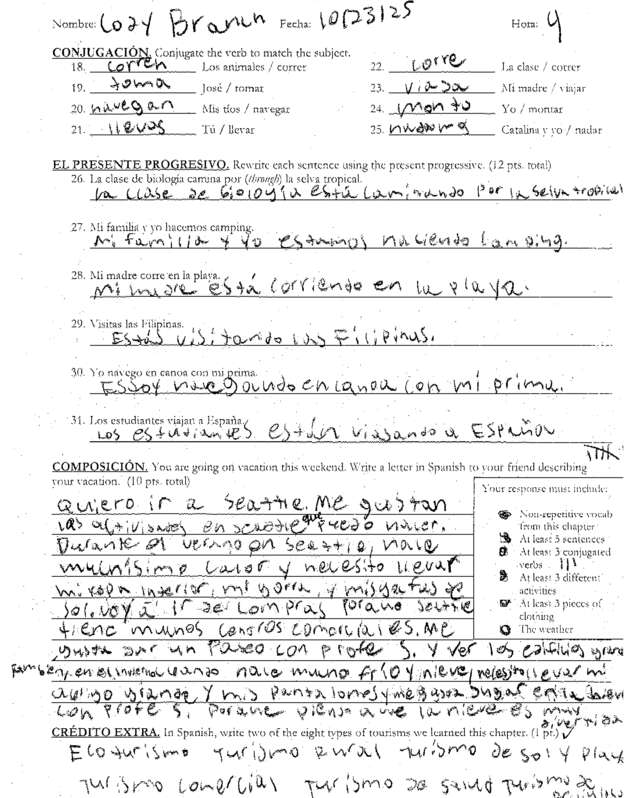 Nombre: Cozy Branch Fecha: 10/23/25 Hora: 4
CONJUGACIÓN. Conjugate the verb to match the subject.
18. corren Los animales / correr 22. corre La clase / correr
19. toma José / tomar 23. viaja Mi madre / viajar
20. navegan Mis tíos / navegar 24. monto Yo / montar
21. llevas Tú / llevar 25. nadamos Catalina y yo / nadar
EL PRESENTE PROGRESIVO. Rewrite each sentence using the present progressive. (12 pts. total)
26. La clase de biología camina por (through) la selva tropical.
La clase de biología está caminando por la selva tropical
27. Mi familia y yo hacemos camping.
Mi familia y yo estamos haciendo camping.
28. Mi madre corre en la playa.
Mi madre está corriendo en la playa.
29. Visitas las Filipinas.
Estás visitando las Filipinas.
30. Yo navego en canoa con mi prima.
Estoy navegando en canoa con mi prima.
31. Los estudiantes viajan a España.
Los estudiantes están viajando a España
COMPOSICIÓN. You are going on vacation this weekend. Write a letter in Spanish to your friend describing
your vacation. (10 pts. total)
Your response must include:
Non-repetitive vocab
from this chapter
At least 5 sentences
At least 3 conjugated
verbs
At least 3 different
activities
At least 3 pieces of
clothing
The weather
Quiero ir a Seattle. Me gustan
las actividades en Seattle que puedo hacer.
Durante el verano en Seattle, hace
muchísimo calor y necesito llevar
mi ropa interior, mi gorra, y mis gafas de
sol. Voy a ir de compras porque Seattle
tiene muchos centros comerciales. Me
gusta dar un paseo con profe S. y ver los edificios grand
También, en el invierno cuando hace mucho frío y nieve, necesito llevar mi
abrigo grande y mis pantalones y me gusta jugar en la nieve
con profe S. porque pienso que la nieve es muy
divertida
CRÉDITO EXTRA. In Spanish, write two of the eight types of tourisms we learned this chapter. (1 pt.)
Ecoturismo turismo rural turismo de sol y playa
turismo comercial turismo de salud turismo de